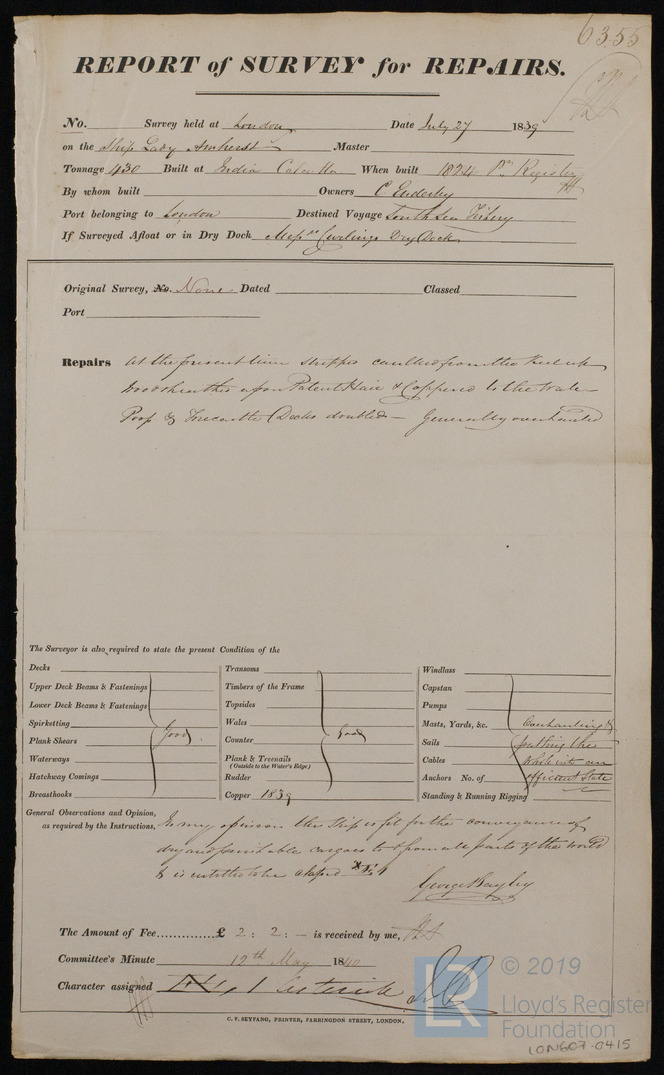 6355
REPORT of SURVEY for REPAIRS.
No. Survey held at London Date July 27 1839
on the Ship Lady Amherst Master
Tonnage 430 Built at India Calcutta When built 1824 Pr Register
By whom built Owners C Enderby
Port belonging to London Destined Voyage South Sea Fishery
If Surveyed Afloat or in Dry Dock Messrs Curlings Dry Dock
Original Survey, No. None Dated Classed
Port
Repairs At the present time stripped caulked from the Keel up
Wood sheathed upon Patent Hair & Coppered to the Wales
Poop & Forecastle Decks doubled — Generally overhauled
The Surveyor is also required to state the present Condition of the
Decks
Upper Deck Beams & Fastenings
Lower Deck Beams & Fastenings
Spirketting
Plank Shears good.
Waterways
Hatchway Comings
Breasthooks
Transoms
Timbers of the Frame
Topsides
Wales
Counter Good
Plank & Treenails
(Outside to the Water's Edge)
Rudder
Copper 1839
Windlass
Capstan
Pumps
Masts, Yards, &c. Overhauling &
Sails putting the
Cables whole into an
Anchors No. of efficient State
Standing & Running Rigging
General Observations and Opinion, In my opinion this Ship is fit for the conveyance of
as required by the Instructions, dry and perishable cargoes to & from all parts of the world
& is entitled to be classed
George Bayley
The Amount of Fee..............£ 2 : 2 : — is received by me,
Committee's Minute 12th May 1840
Character assigned 1 Asterisk
C. F. SEYFANG, PRINTER, FARRINGDON STREET, LONDON.
LR © 2019
Lloyd's Register
Foundation
LON607-0415